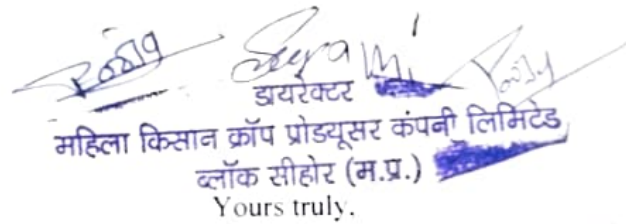 डायरेक्टर
महिला किसान क्रॉप प्रोडयूसर कंपनी लिमिटेड
ब्लॉक सीहोर (म.प्र.)
Yours truly,